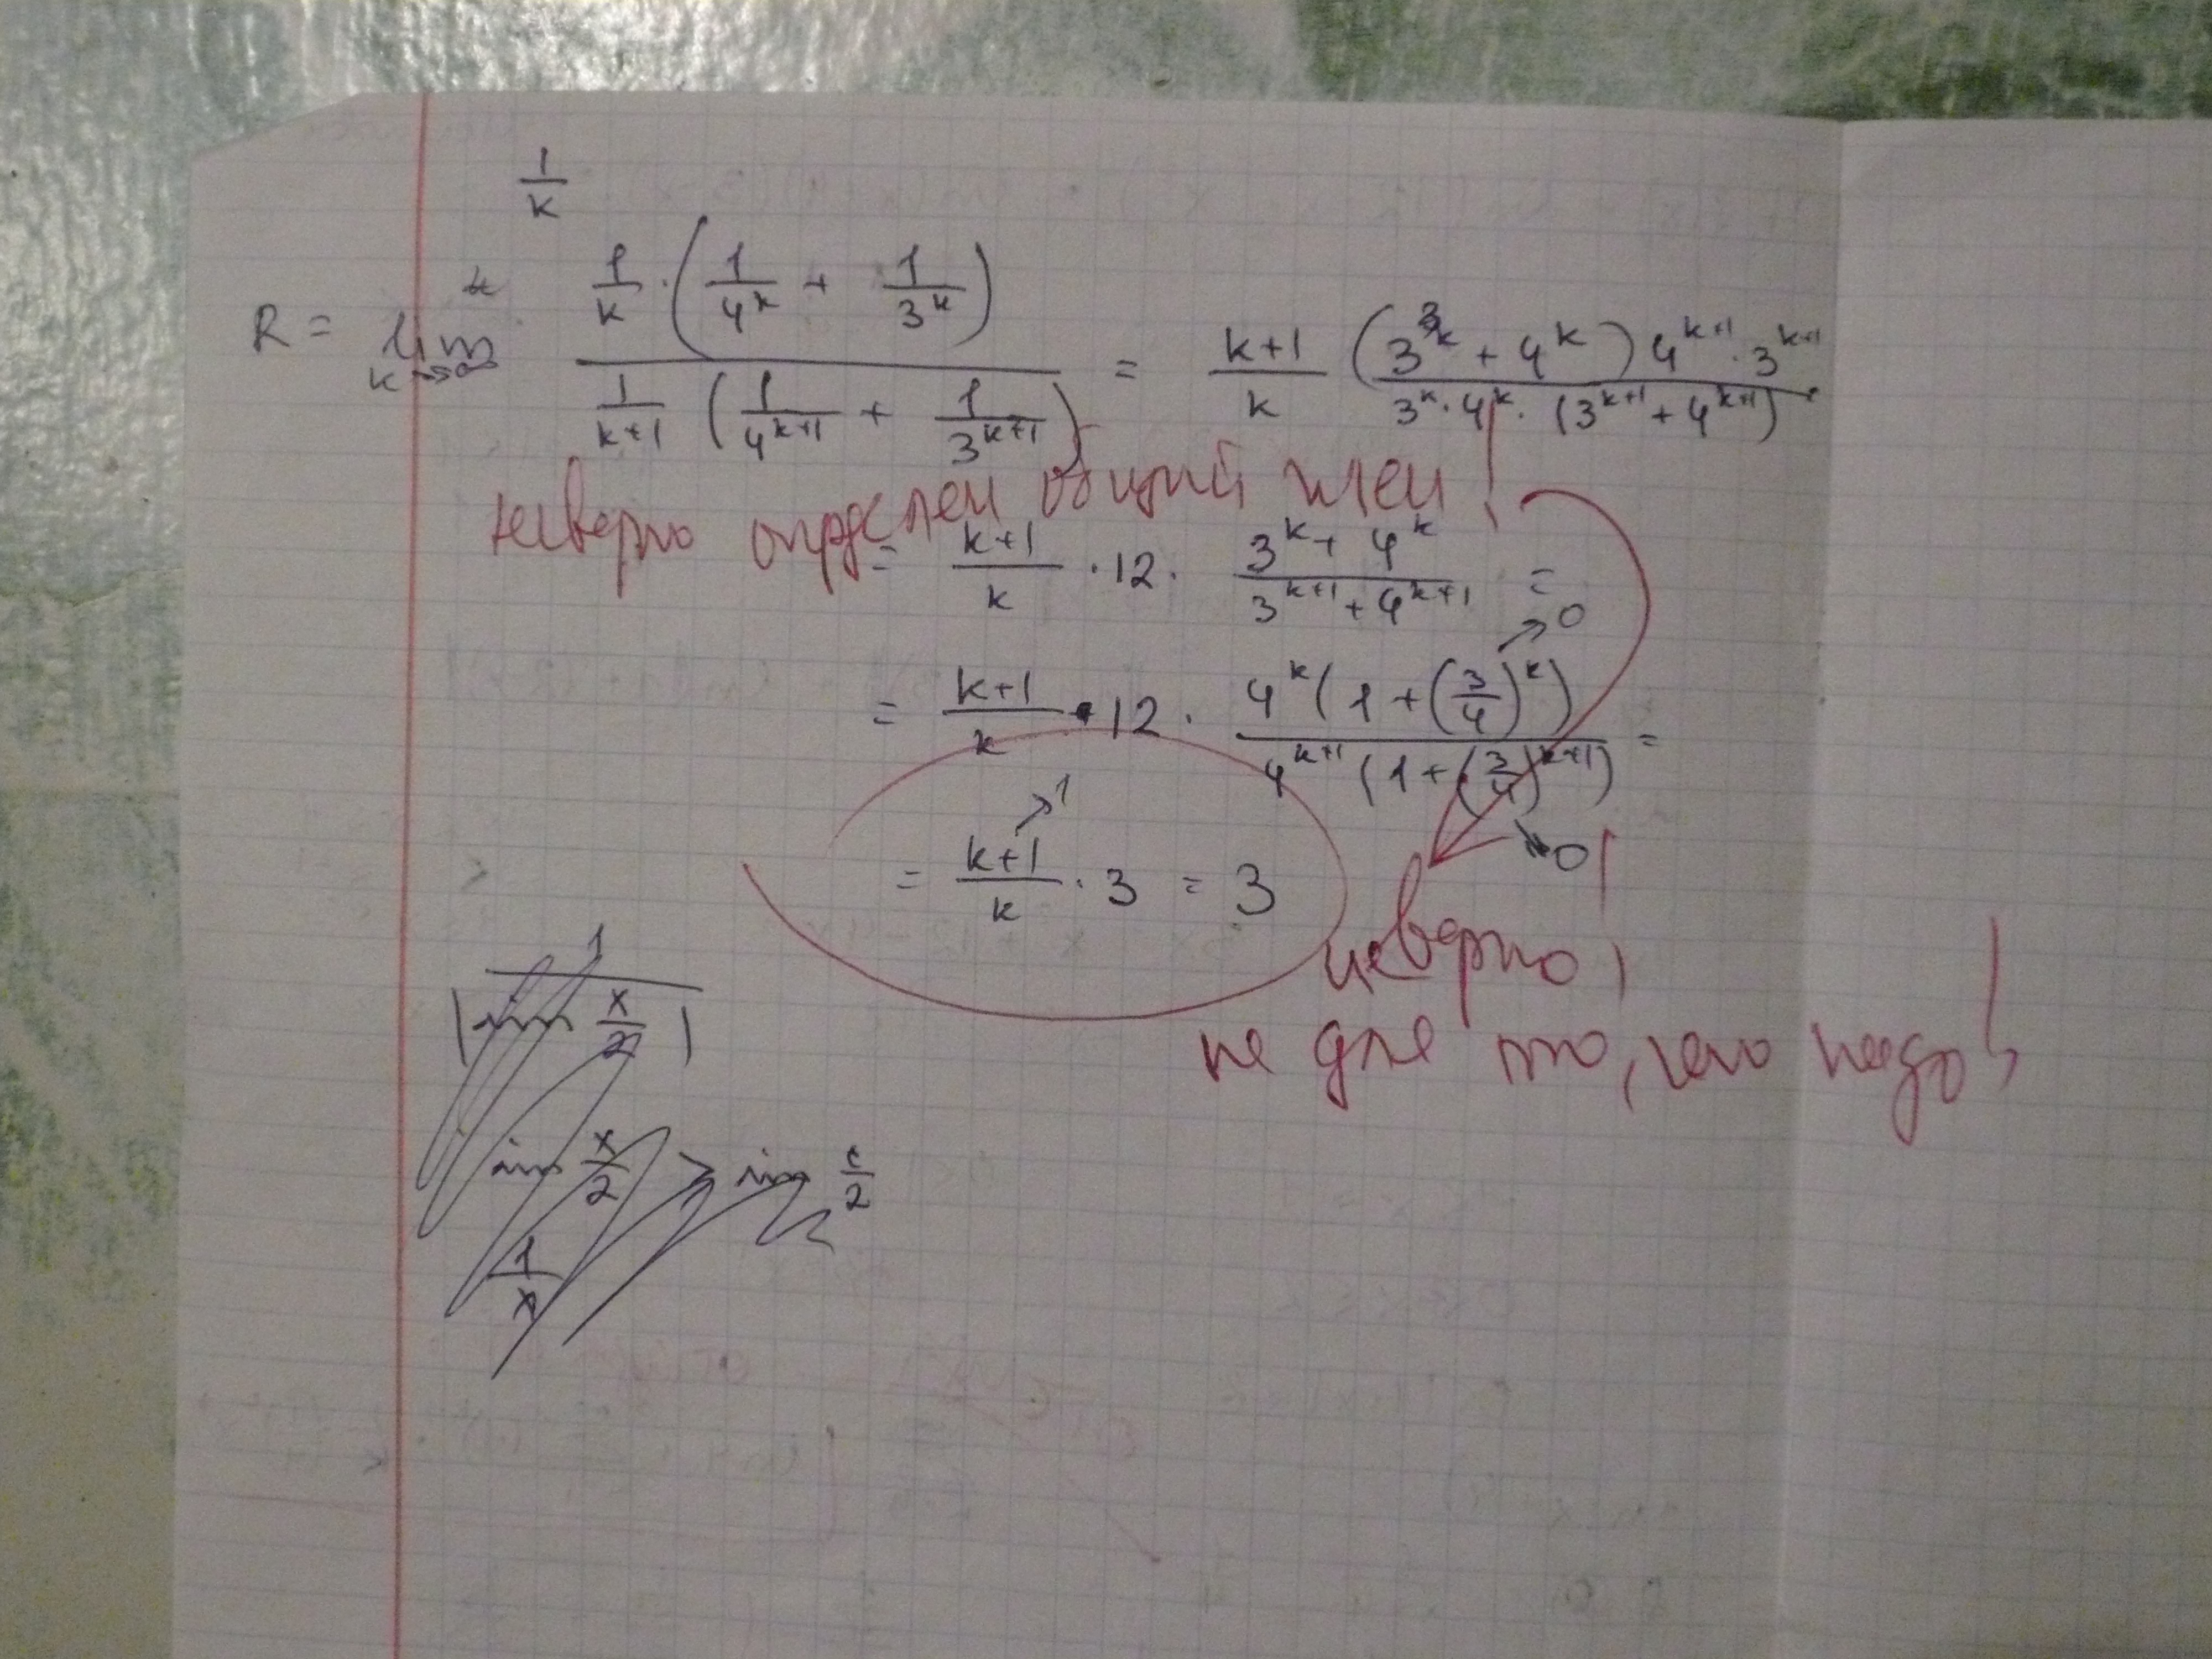 1/k
R = lim k→∞ (1/k · (1/4^k + 1/3^k)) / (1/(k+1) (1/4^(k+1) + 1/3^(k+1))) = (k+1)/k ((3^k + 4^k) 4^(k+1) · 3^(k+1)) / (3^k · 4^k · (3^(k+1) + 4^(k+1)))
неверно определен общий член!
= (k+1)/k · 12 · (3^k + 4^k)/(3^(k+1) + 4^(k+1)) =
→0
= (k+1)/k · 12 · (4^k (1 + (3/4)^k))/(4^(k+1) (1 + (3/4)^(k+1))) =
→0
→1
= (k+1)/k · 3 = 3
неверно!
не для того, чего надо!
1/|sin x/2|
sin x/2 > sin ε/2
1/x